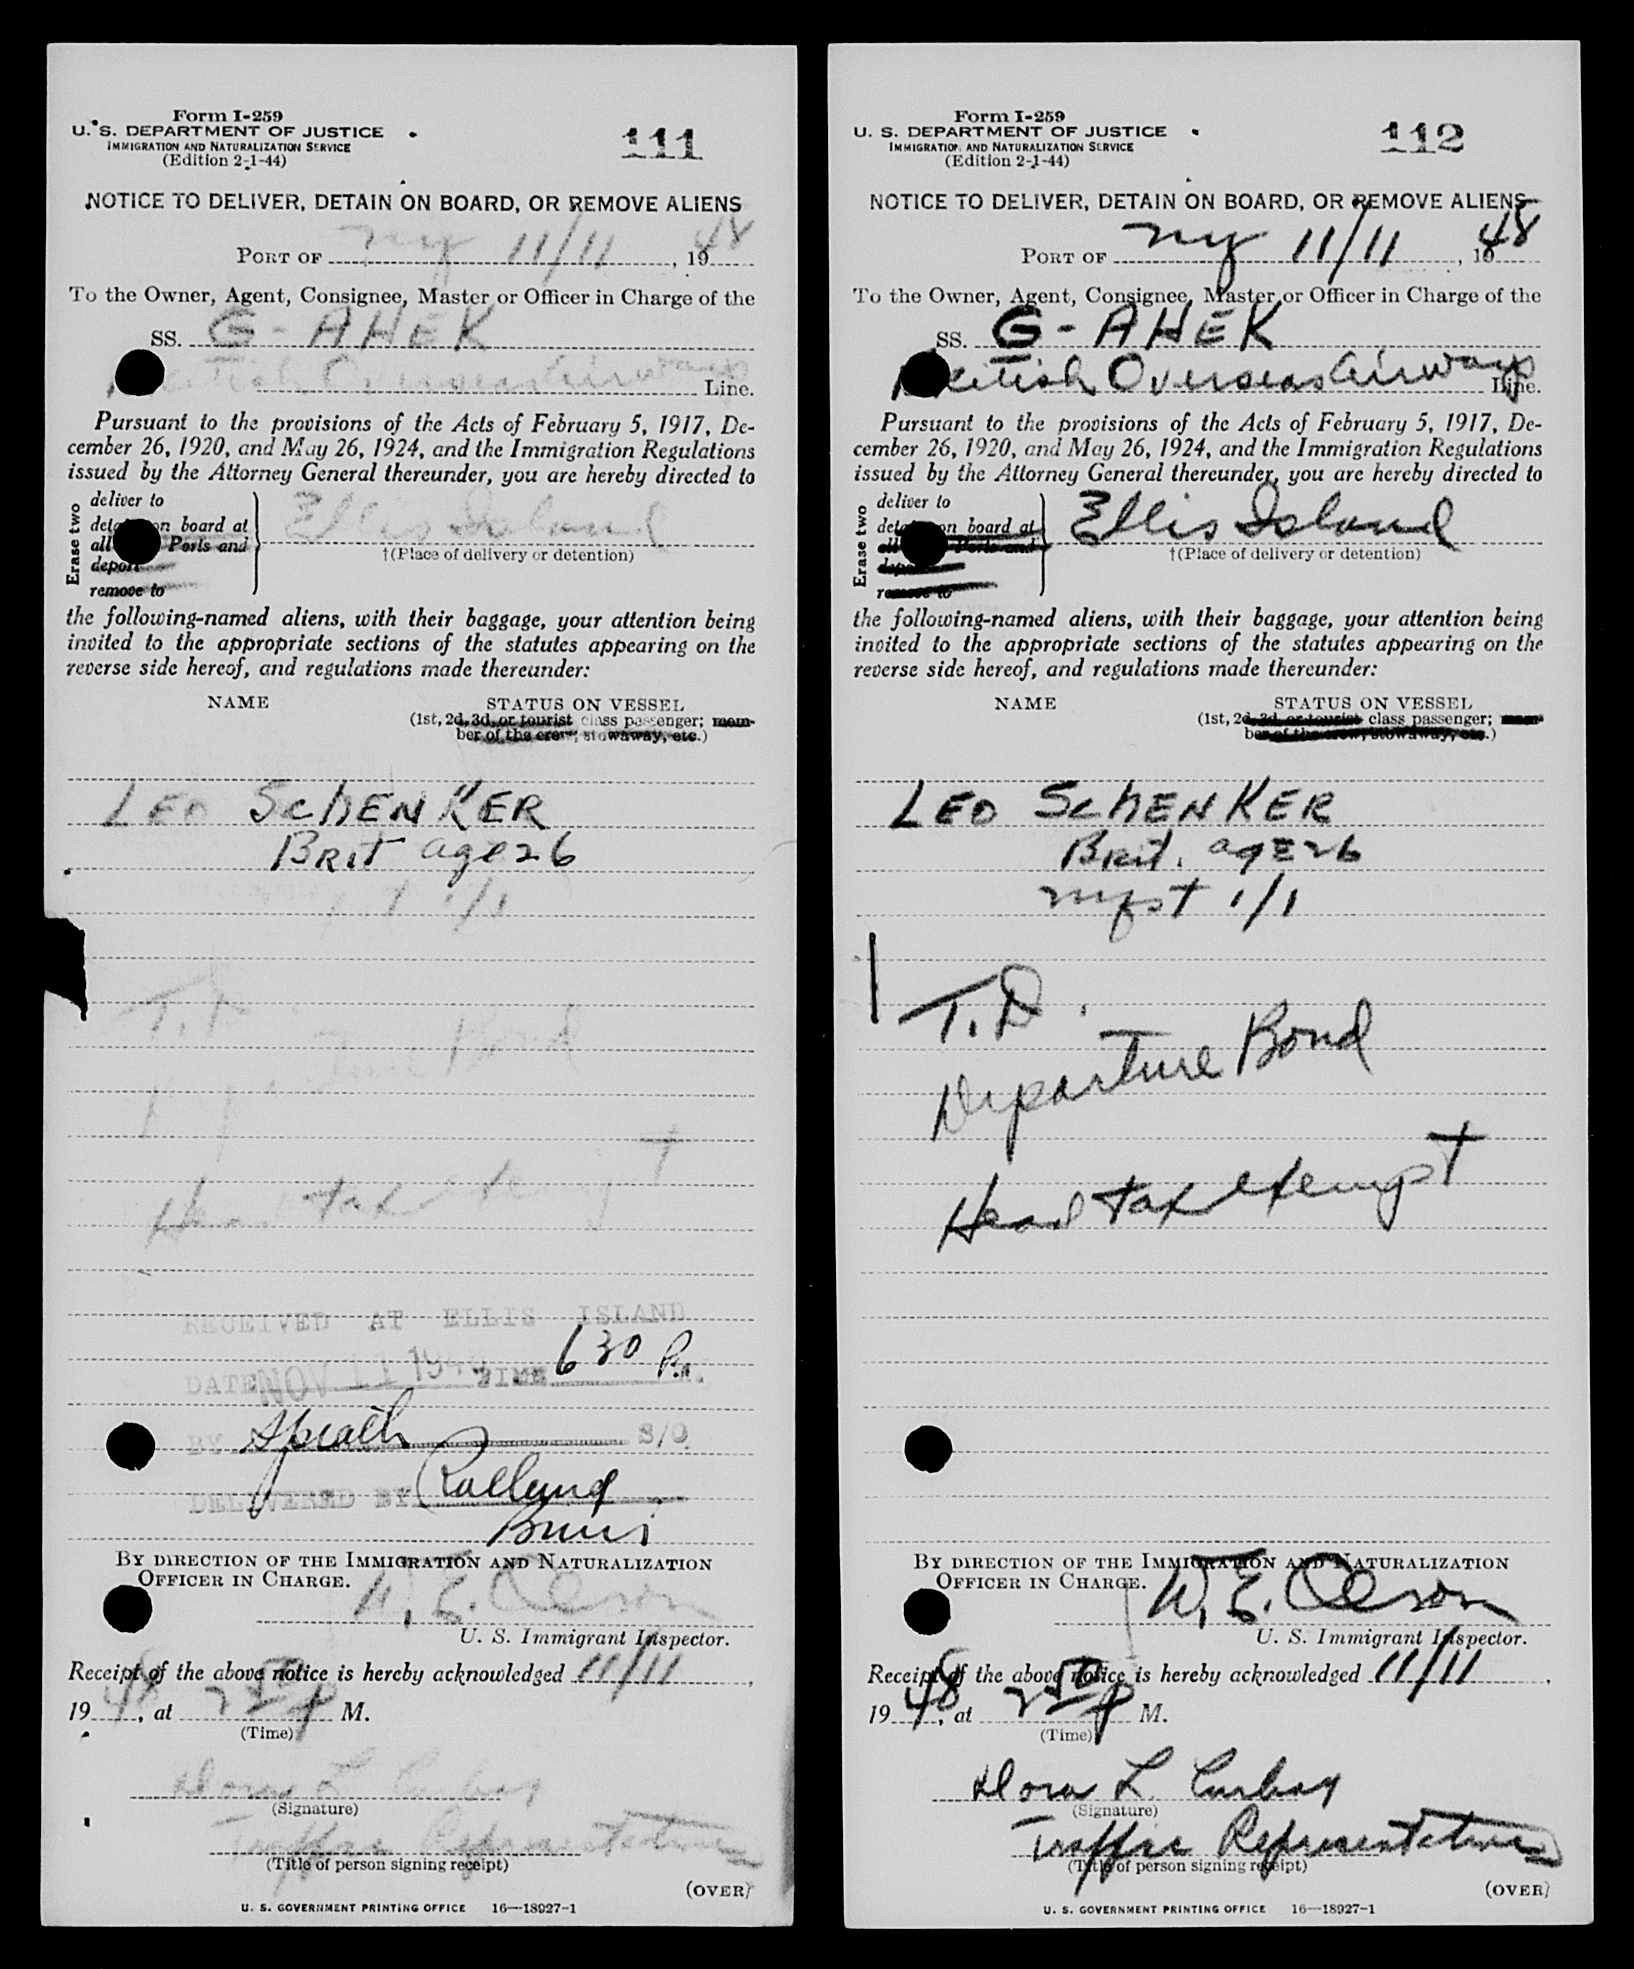 Form I-259
U. S. DEPARTMENT OF JUSTICE
IMMIGRATION AND NATURALIZATION SERVICE
(Edition 2-1-44)
111
NOTICE TO DELIVER, DETAIN ON BOARD, OR REMOVE ALIENS
PORT OF ny 11/11, 1948
To the Owner, Agent, Consignee, Master or Officer in Charge of the
SS. G-AHEK
British Overseas Airways Line.
Pursuant to the provisions of the Acts of February 5, 1917, De-
cember 26, 1920, and May 26, 1924, and the Immigration Regulations
issued by the Attorney General thereunder, you are hereby directed to
Erase two
deliver to
on board at
all Ports and
deport
remove to
Ellis Island
†(Place of delivery or detention)
the following-named aliens, with their baggage, your attention being
invited to the appropriate sections of the statutes appearing on the
reverse side hereof, and regulations made thereunder:
NAME
STATUS ON VESSEL
(1st, 2d, 3d, or tourist class passenger; mem-
ber of the crew; stowaway, etc.)
LEO SCHENKER
BRIT age 26
1/1
T.D
Departure Bond
Head tax exempt
RECEIVED AT ELLIS ISLAND
DATE NOV 11 194 TIME 6 30 Pm.
BY S/O
DELIVERED BY
BY DIRECTION OF THE IMMIGRATION AND NATURALIZATION
OFFICER IN CHARGE.
W. E. Olson
U. S. Immigrant Inspector.
Receipt of the above notice is hereby acknowledged 11/11,
1948, at 2 50 P M.
(Time)
Dora L.
(Signature)
Traffic Representative
(Title of person signing receipt)
(OVER)
U. S. GOVERNMENT PRINTING OFFICE 16—18927-1
Form I-259
U. S. DEPARTMENT OF JUSTICE
IMMIGRATION AND NATURALIZATION SERVICE
(Edition 2-1-44)
112
NOTICE TO DELIVER, DETAIN ON BOARD, OR REMOVE ALIENS
PORT OF ny 11/11, 1948
To the Owner, Agent, Consignee, Master or Officer in Charge of the
SS. G-AHEK
British Overseas Airways Line.
Pursuant to the provisions of the Acts of February 5, 1917, De-
cember 26, 1920, and May 26, 1924, and the Immigration Regulations
issued by the Attorney General thereunder, you are hereby directed to
Erase two
deliver to
on board at
all Ports and
deport
remove to
Ellis Island
†(Place of delivery or detention)
the following-named aliens, with their baggage, your attention being
invited to the appropriate sections of the statutes appearing on the
reverse side hereof, and regulations made thereunder:
NAME
STATUS ON VESSEL
(1st, 2d, 3d, or tourist class passenger; mem-
ber of the crew, stowaway, etc.)
LEO SCHENKER
Brit. age 26
mfst 1/1
T.D.
Departure Bond
Head tax exempt
BY DIRECTION OF THE IMMIGRATION AND NATURALIZATION
OFFICER IN CHARGE.
W. E. Olson
U. S. Immigrant Inspector.
Receipt of the above notice is hereby acknowledged 11/11,
1948, at 2 50 P M.
(Time)
Dora L.
(Signature)
Traffic Representative
(Title of person signing receipt)
(OVER)
U. S. GOVERNMENT PRINTING OFFICE 16—18927-1